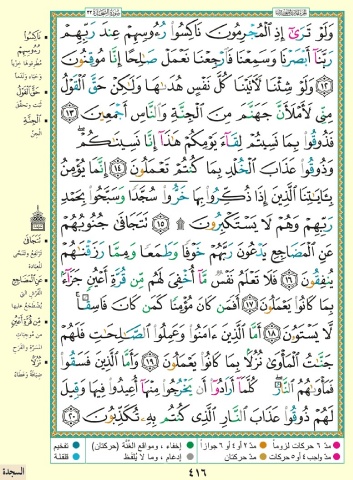 سورة السجدة ٣٢
وَلَوْ تَرَىٰٓ إِذِ ٱلْمُجْرِمُونَ نَاكِسُوا۟ رُءُوسِهِمْ عِندَ رَبِّهِمْ
رَبَّنَآ أَبْصَرْنَا وَسَمِعْنَا فَٱرْجِعْنَا نَعْمَلْ صَـٰلِحًا إِنَّا مُوقِنُونَ
١٢ وَلَوْ شِئْنَا لَـَٔاتَيْنَا كُلَّ نَفْسٍ هُدَىٰهَا وَلَـٰكِنْ حَقَّ ٱلْقَوْلُ
مِنِّى لَأَمْلَأَنَّ جَهَنَّمَ مِنَ ٱلْجِنَّةِ وَٱلنَّاسِ أَجْمَعِينَ ١٣
فَذُوقُوا۟ بِمَا نَسِيتُمْ لِقَآءَ يَوْمِكُمْ هَـٰذَآ إِنَّا نَسِينَـٰكُمْ ۖ
وَذُوقُوا۟ عَذَابَ ٱلْخُلْدِ بِمَا كُنتُمْ تَعْمَلُونَ ١٤ إِنَّمَا يُؤْمِنُ
بِـَٔايَـٰتِنَا ٱلَّذِينَ إِذَا ذُكِّرُوا۟ بِهَا خَرُّوا۟ سُجَّدًا وَسَبَّحُوا۟ بِحَمْدِ
رَبِّهِمْ وَهُمْ لَا يَسْتَكْبِرُونَ ۩ ١٥ تَتَجَافَىٰ جُنُوبُهُمْ
عَنِ ٱلْمَضَاجِعِ يَدْعُونَ رَبَّهُمْ خَوْفًا وَطَمَعًا وَمِمَّا رَزَقْنَـٰهُمْ
يُنفِقُونَ ١٦ فَلَا تَعْلَمُ نَفْسٌ مَّآ أُخْفِىَ لَهُم مِّن قُرَّةِ أَعْيُنٍ جَزَآءًۢ
بِمَا كَانُوا۟ يَعْمَلُونَ ١٧ أَفَمَن كَانَ مُؤْمِنًا كَمَن كَانَ فَاسِقًا ۚ
لَّا يَسْتَوُۥنَ ١٨ أَمَّا ٱلَّذِينَ ءَامَنُوا۟ وَعَمِلُوا۟ ٱلصَّـٰلِحَـٰتِ فَلَهُمْ
جَنَّـٰتُ ٱلْمَأْوَىٰ نُزُلًۢا بِمَا كَانُوا۟ يَعْمَلُونَ ١٩ وَأَمَّا ٱلَّذِينَ فَسَقُوا۟
فَمَأْوَىٰهُمُ ٱلنَّارُ ۖ كُلَّمَآ أَرَادُوٓا۟ أَن يَخْرُجُوا۟ مِنْهَآ أُعِيدُوا۟ فِيهَا وَقِيلَ
لَهُمْ ذُوقُوا۟ عَذَابَ ٱلنَّارِ ٱلَّذِى كُنتُم بِهِۦ تُكَذِّبُونَ ٢٠
نَاكِسُوا۟
رُءُوسِهِمْ
حَقَّ ٱلْقَوْلُ
ثبت وتحقق
ٱلْجِنَّةِ
الجن
تَتَجَافَىٰ
عَنِ ٱلْمَضَاجِعِ
مِّن قُرَّةِ أَعْيُنٍ
نُزُلًۢا
ضيافة وعطاء
مدّ ٦ حركات لزوماً
مدّ ٢ أو ٤ أو ٦ جوازاً
إخفاء، ومواقع الغُنَّة (حركتان)
تفخيم
مدّ واجب ٤ أو ٥ حركات
مدّ حركتان
إدغام، وما لا يُلفظ
قلقلة
٤١٦
السجدة